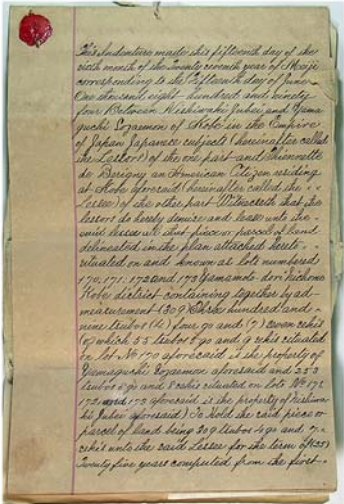 This Indenture made this fifteenth day of the
sixth month of the Twenty seventh year of Meiji
corresponding to the Fifteenth day of June
One thousand eight hundred and ninety
four Between Nishiwaki Jubei and Yama
guchi Sozaemon of Kobe in the Empire
of Japan Japanese subjects (hereinafter called
the Lessors) of the one part and Thiennette
de Berigny an American Citizen residing
at Kobe aforesaid (hereinafter called the
Lessee) of the other part Witnesseth that the
lessors do hereby demise and lease unto the
said lessee all that piece or parcel of land
delineated in the plan attached hereto
situated on and known as lots numbered
170, 171, 172 and 173 Yamamoto-dori Nichome
Kobe district containing together by ad-
measurement (309) Three hundred and
nine tsubos (4) four go and (7) seven seki
(of which 55 tsubos 5 go and 9 seki situated
on lot No 170 aforesaid is the property of
Yamaguchi Sozaemon aforesaid and 253
tsubos 8 go and 8 seki situated on lots No 171
172 and 173 aforesaid is the property of Nishiwa
ki Jubei aforesaid) To Hold the said piece or
parcel of land being 309 tsubos 4 go and 7
seki unto the said Lessee for the term of (25)
Twenty five years computed from the first